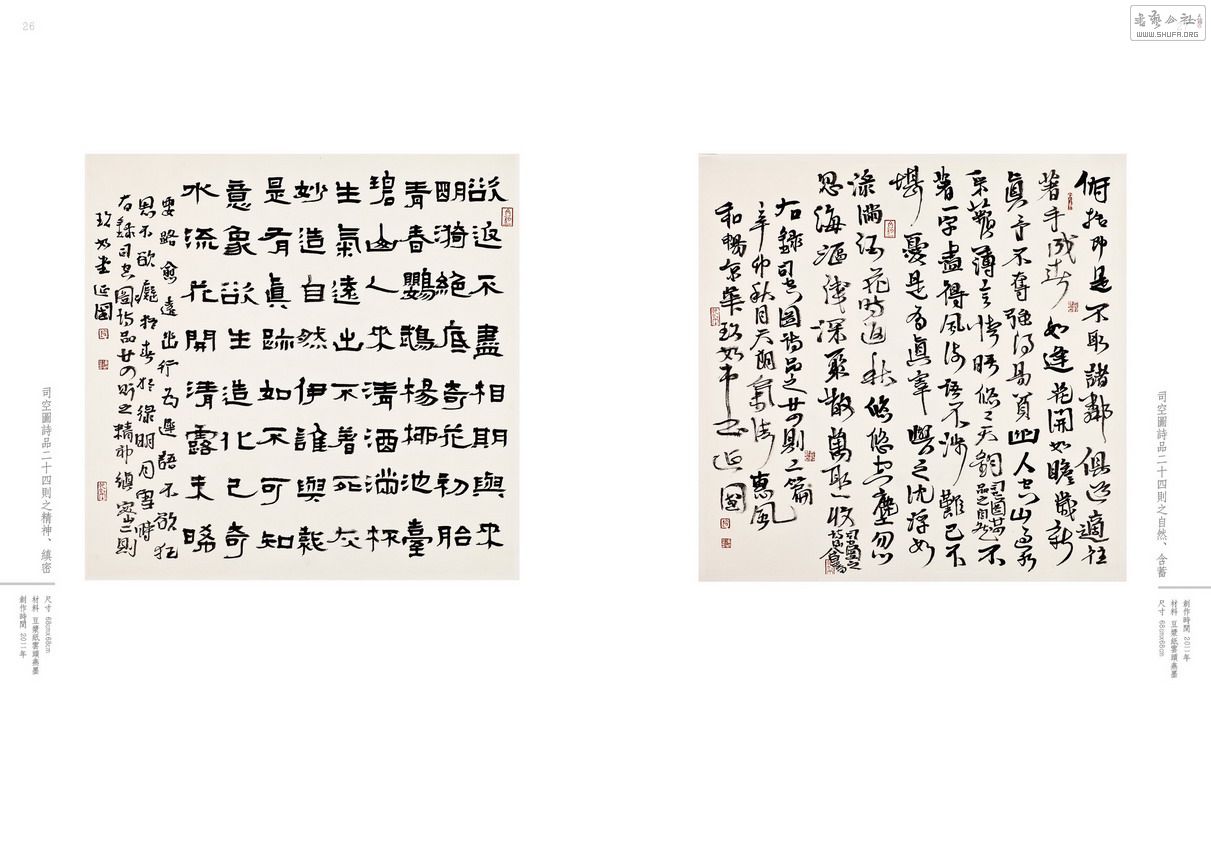 26
书艺公社
WWW.SHUFA.ORG
欲返不盡相期與來
明漪絕底奇花初胎
青春鸚鵡楊柳池臺
碧山人來清酒滿杯
生氣遠出不著死灰
妙造自然伊誰與裁
是有眞跡如不可知
意象欲生造化已奇
水流花開清露未晞
要路愈遠幽行為遲語不欲犯
思不欲癡猶春於綠明月雪時
右錄司空圖詩品廿四則之精神縝密二則
玖如堂延國
司空圖詩品二十四則之精神、縝密
尺寸 68cmx68cm
材料 豆漿紙雲頭燕墨
創作時間 2011年
俯拾即是不取諸鄰俱道適往
著手成春如逢花開如瞻歲新
眞予不奪強得易貧幽人空山過雨
采蘋薄言情悟悠悠天鈞不
著一字盡得風流語不涉難已不
堪憂是有眞宰與之沈浮如
淥滿酒花時返秋悠悠空塵忽
忽海漚淺深聚散萬取一收
右錄司空圖詩品之廿四則二篇
辛卯秋月天朗氣清惠風
和暢京華玖如延國
司空圖詩品二十四則之自然、含蓄
創作時間 2011年
材料 豆漿紙雲頭燕墨
尺寸 68cmx68cm